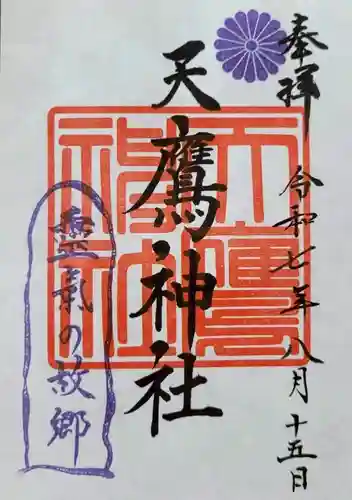 奉拝
令和七年八月十五日
天鷹神社
天鷹神社
靈氣の故郷